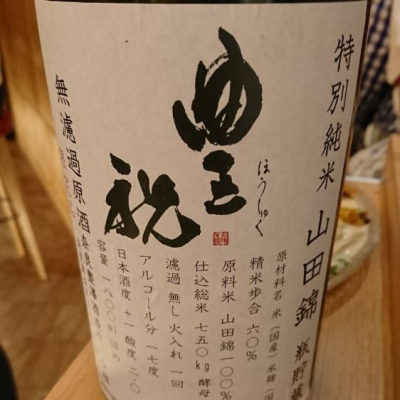 特別純米 山田錦 瓶貯蔵
原材料名 米(国産)米麹(国
精米歩合 六〇%
原料米 山田錦一〇〇%
仕込総米 七五〇kg 酵母
濾過 無し 火入れ 一回
アルコール分 一七度
日本酒度 +一 酸度 二・〇
容量 一八〇〇ml詰め
豊祝
ほうしゅく
無濾過原酒
奈良豊澤酒造